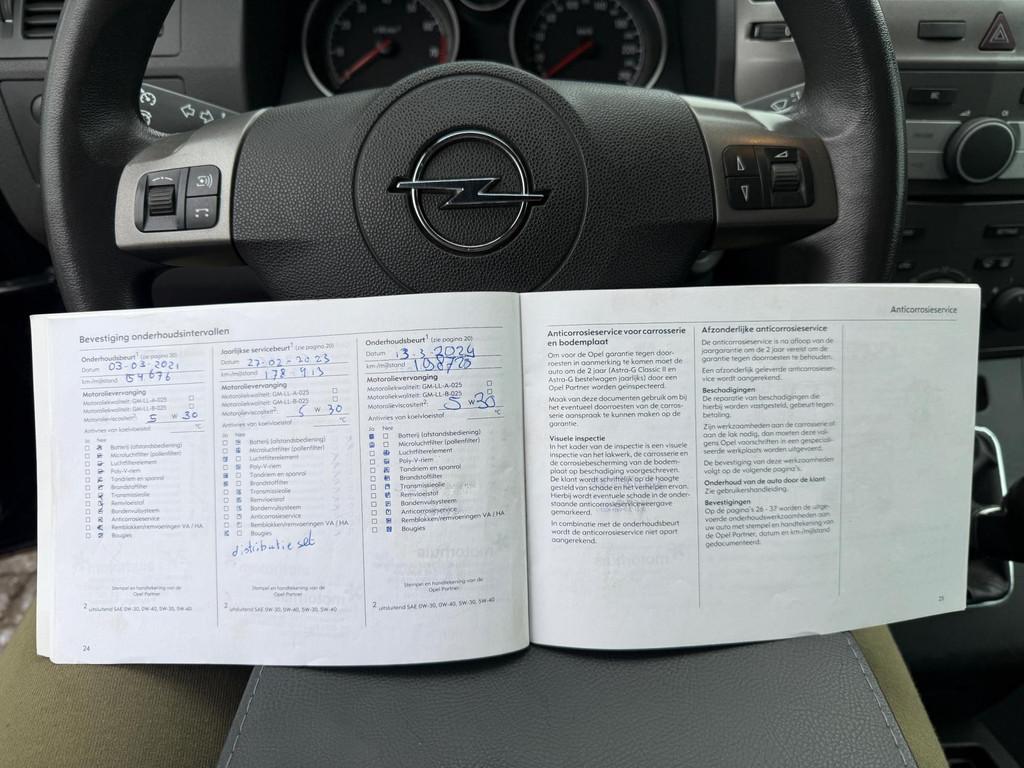 Bevestiging onderhoudsintervallen
Onderhoudsbeurt¹ (zie pagina 20)
Datum 03-03-2021
km-/mijlstand
Motorolievervanging
Motoroliekwaliteit: GM-LL-A-025
Motoroliekwaliteit: GM-LL-B-025
Motorolieviscositeit²: 5 W 30
Antivries van koelvloeistof °C
Ja Nee
Batterij (afstandsbediening)
Microluchtfilter (pollenfilter)
Luchtfilterelement
Poly-V-riem
Tandriem en spanrol
Brandstoffilter
Transmissieolie
Remvloeistof
Bandenvulsysteem
Anticorrosieservice
Remblokken/remvoeringen VA / HA
Bougies
Stempel en handtekening van de
Opel Partner
² uitsluitend SAE 0W-30, 0W-40, 5W-30, 5W-40
24
Jaarlijkse servicebeurt¹ (zie pagina 20)
Datum 27-02-2023
km-/mijlstand 178-913
Motorolievervanging
Motoroliekwaliteit: GM-LL-A-025
Motoroliekwaliteit: GM-LL-B-025
Motorolieviscositeit²: 5 W 30
Antivries van koelvloeistof °C
Ja Nee
Batterij (afstandsbediening)
Microluchtfilter (pollenfilter)
Luchtfilterelement
Poly-V-riem
Tandriem en spanrol
Brandstoffilter
Transmissieolie
Remvloeistof
Bandenvulsysteem
Anticorrosieservice
Remblokken/remvoeringen VA / HA
Bougies
distributie set
Stempel en handtekening van de
Opel Partner
² uitsluitend SAE 0W-30, 0W-40, 5W-30, 5W-40
Onderhoudsbeurt¹ (zie pagina 20)
Datum 13-3-2024
km-/mijlstand 198728
Motorolievervanging
Motoroliekwaliteit: GM-LL-A-025
Motoroliekwaliteit: GM-LL-B-025
Motorolieviscositeit²: 5 W 30
Antivries van koelvloeistof °C
Ja Nee
Batterij (afstandsbediening)
Microluchtfilter (pollenfilter)
Luchtfilterelement
Poly-V-riem
Tandriem en spanrol
Brandstoffilter
Transmissieolie
Remvloeistof
Bandenvulsysteem
Anticorrosieservice
Remblokken/remvoeringen VA / HA
Bougies
Stempel en handtekening van de
Opel Partner
² uitsluitend SAE 0W-30, 0W-40, 5W-30, 5W-40
Anticorrosieservice
Anticorrosieservice voor carrosserie
en bodemplaat
Om voor de Opel garantie tegen door-
roesten in aanmerking te komen moet de
auto om de 2 jaar (Astra-G Classic II en
Astra-G bestelwagen jaarlijks) door een
Opel Partner worden geïnspecteerd.
Maak van deze documenten gebruik om bij
het eventueel doorroesten van de carros-
serie aanspraak te kunnen maken op de
garantie.
Visuele inspectie
In het kader van de inspectie is een visuele
inspectie van het lakwerk, de carrosserie en
de corrosiebescherming van de bodem-
plaat op beschadiging voorgeschreven.
De klant wordt schriftelijk op de hoogte
gesteld van schade en het verhelpen ervan.
Hierbij wordt eventuele schade in de onder-
staande anticorrosieserviceweergave
gemarkeerd.
In combinatie met de onderhoudsbeurt
wordt de anticorrosieservice niet apart
aangerekend.
Afzonderlijke anticorrosieservice
De anticorrosieservice is na afloop van de
jaargarantie om de 2 jaar vereist om de
garantie tegen doorroesten te behouden.
Een afzonderlijk geleverde anticorrosieser-
vice wordt aangerekend.
Beschadigingen
De reparatie van beschadigingen die
hierbij worden vastgesteld, gebeurt tegen
betaling.
Zijn werkzaamheden aan de carrosserie of
aan de lak nodig, dan moeten deze vol-
gens Opel voorschriften in een gespeciali-
seerde werkplaats worden uitgevoerd.
De bevestiging van deze werkzaamheden
volgt op de volgende pagina's.
Onderhoud van de auto door de klant
Zie gebruikershandleiding.
Bevestigingen
Op de pagina's 26 - 37 worden de uitge-
voerde onderhoudswerkzaamheden aan
uw auto met stempel en handtekening van
de Opel Partner, datum en km-/mijlstand
gedocumenteerd.
25